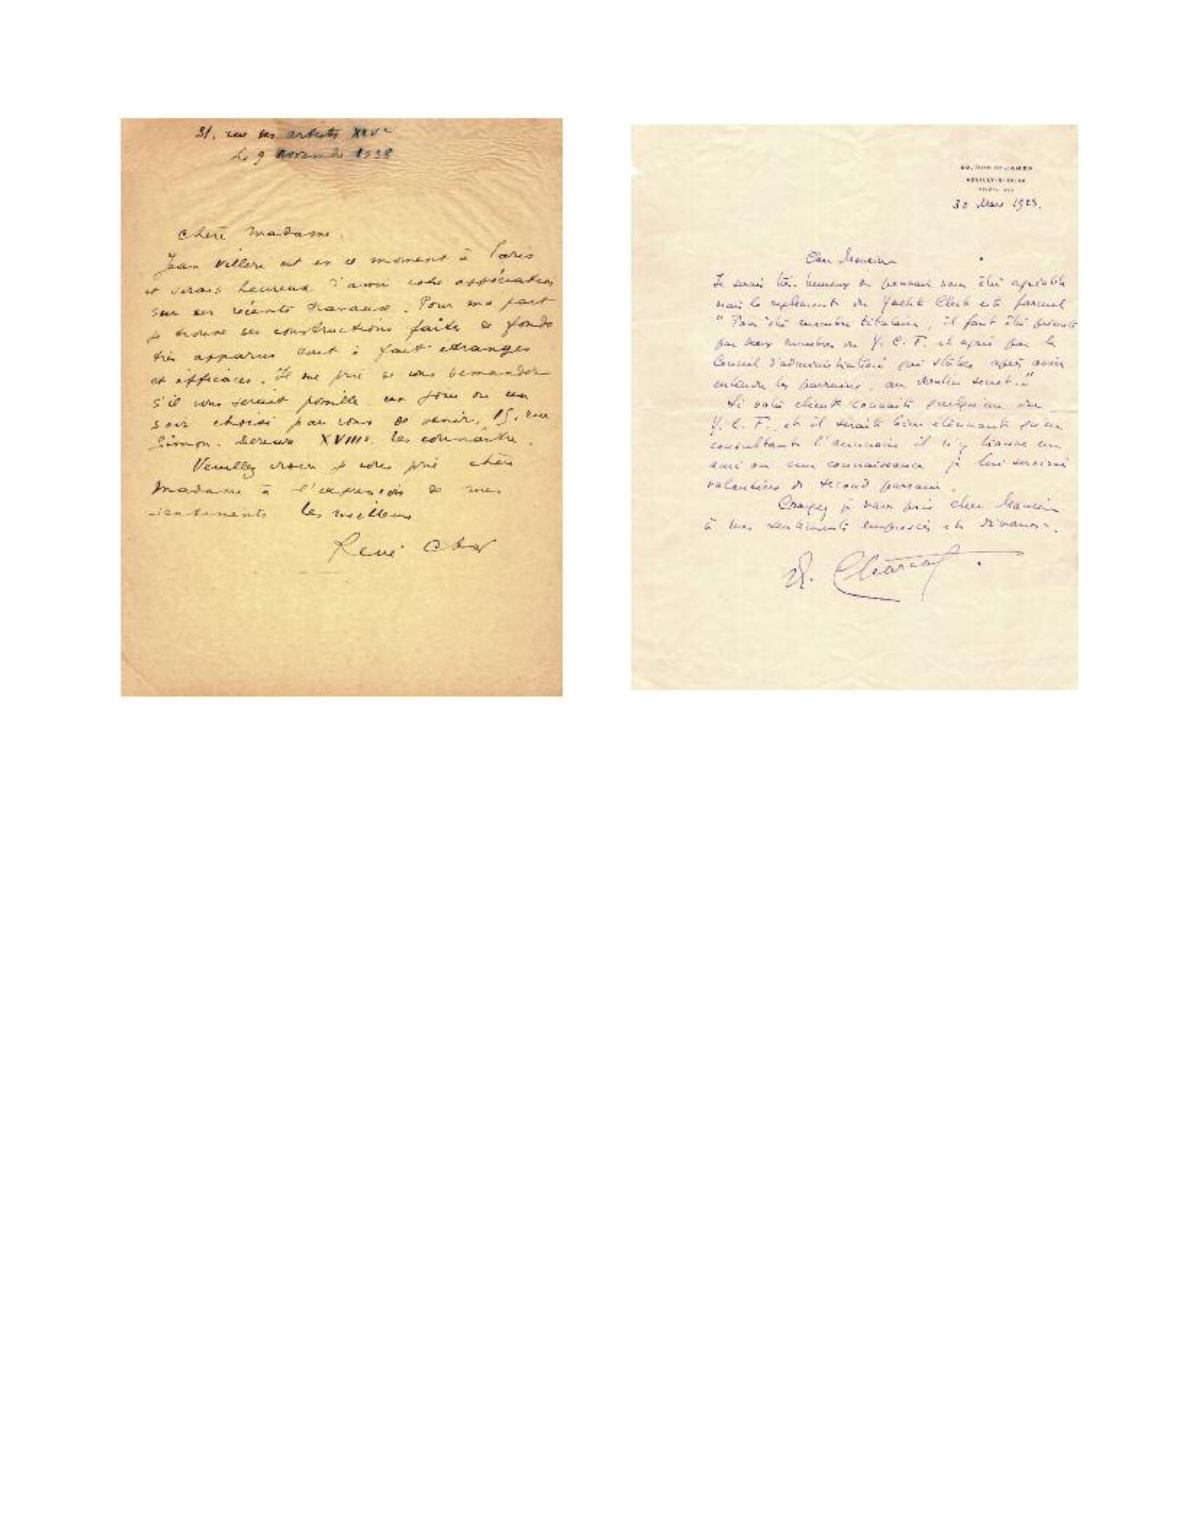 31, rue des artistes XIVe
le 9 novembre 1938
Chère Madame.
Jean Villeri est en ce moment à Paris
et serais heureux d'avoir votre appréciation
sur ses récents travaux. Pour ma part
je trouve ses constructions faites ce fonds
très apparus tout à fait etranges
et efficaces. Il me prie de vous demander
s'il vous serait possible un jour ou un
soir choisi par vous de venir, 15, rue
Simon. Dereure XVIIIe les connaitre.
Veuillez croire je vous prie chère
Madame à l'expression de mes
sentiments les meilleurs
René Char
NEUILLY-S-SEINE
30 Mars 1923.
Cher Monsieur
Je serais très heureux de pouvoir vous être agréable
mais le règlement du Yacht Club est formel
" Pour être membre titulaire, il faut être présenté
par deux membres du Y. C. F. et agréé par le
Conseil d'administration qui statue après avoir
entendu les parrains, au scrutin secret."
Si votre client connait quelqu'un du
Y. C. F. et il serait bien étonnant qu'en
consultant l'annuaire il n'y trouve un
ami ou une connaissance je lui servirai
volontiers de second parrain.
Croyez je vous prie cher Monsieur
à mes sentiments empressés et dévoués.
Charcot